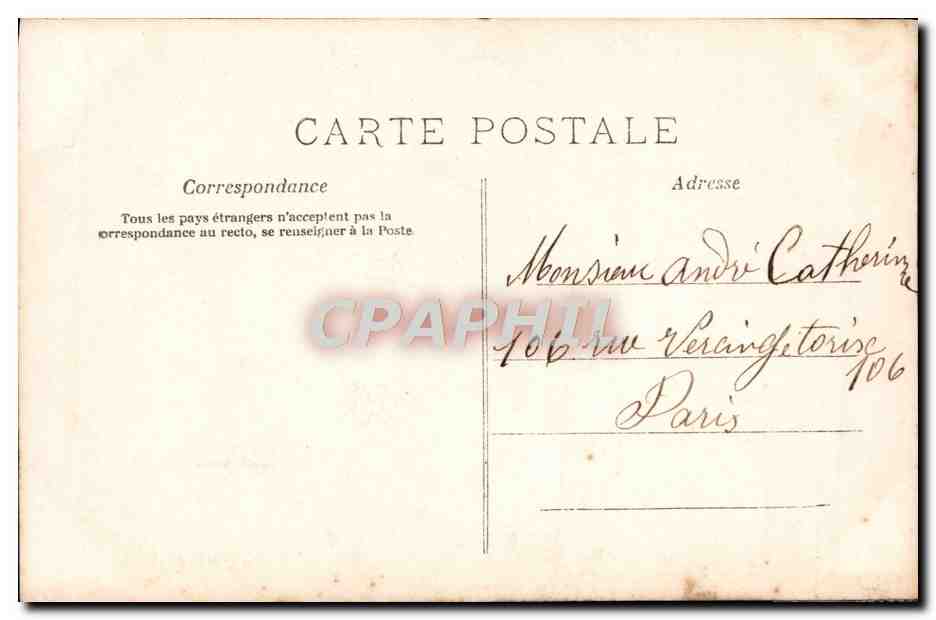 CARTE POSTALE
Correspondance
Tous les pays étrangers n'acceptent pas la
correspondance au recto, se renseigner à la Poste.
Adresse
Monsieur André Catherine
106 rue Vercingetorix
106
Paris
CPAPHIL